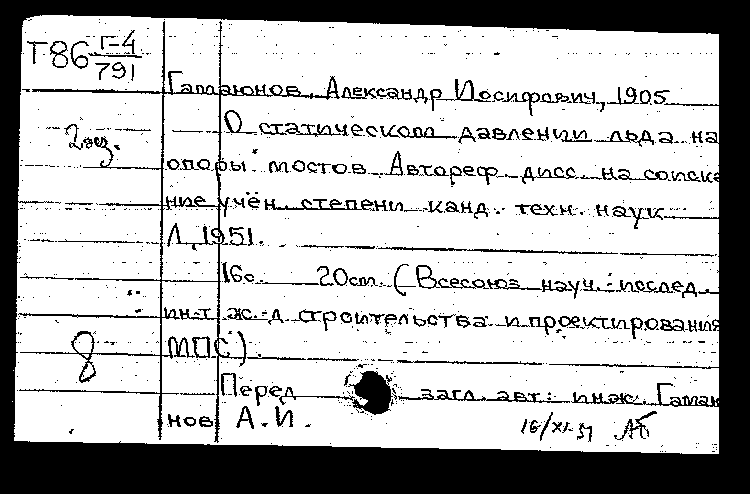 Т86 Г-4/791
Гамаюнов, Александр Иосифович, 1905
2 экз.
О статическом давлении льда на
опоры мостов. Автореф. дисс. на соиска
ние учён. степени канд. техн. наук.
Л, 1951.
16с. 20см. (Всесоюз науч.-исслед.
ин-т ж.-д строительства и проектирования
8 МПС).
Перед загл. авт.: инж. Гамаю
нов А.И.
16/XI-51 АБ